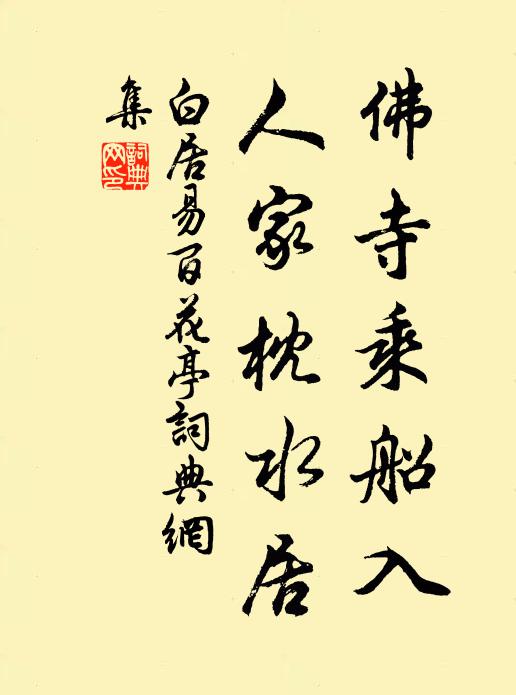 佛寺乘船入
人家枕水居
白居易百花亭詞典網
集
詞典
网印